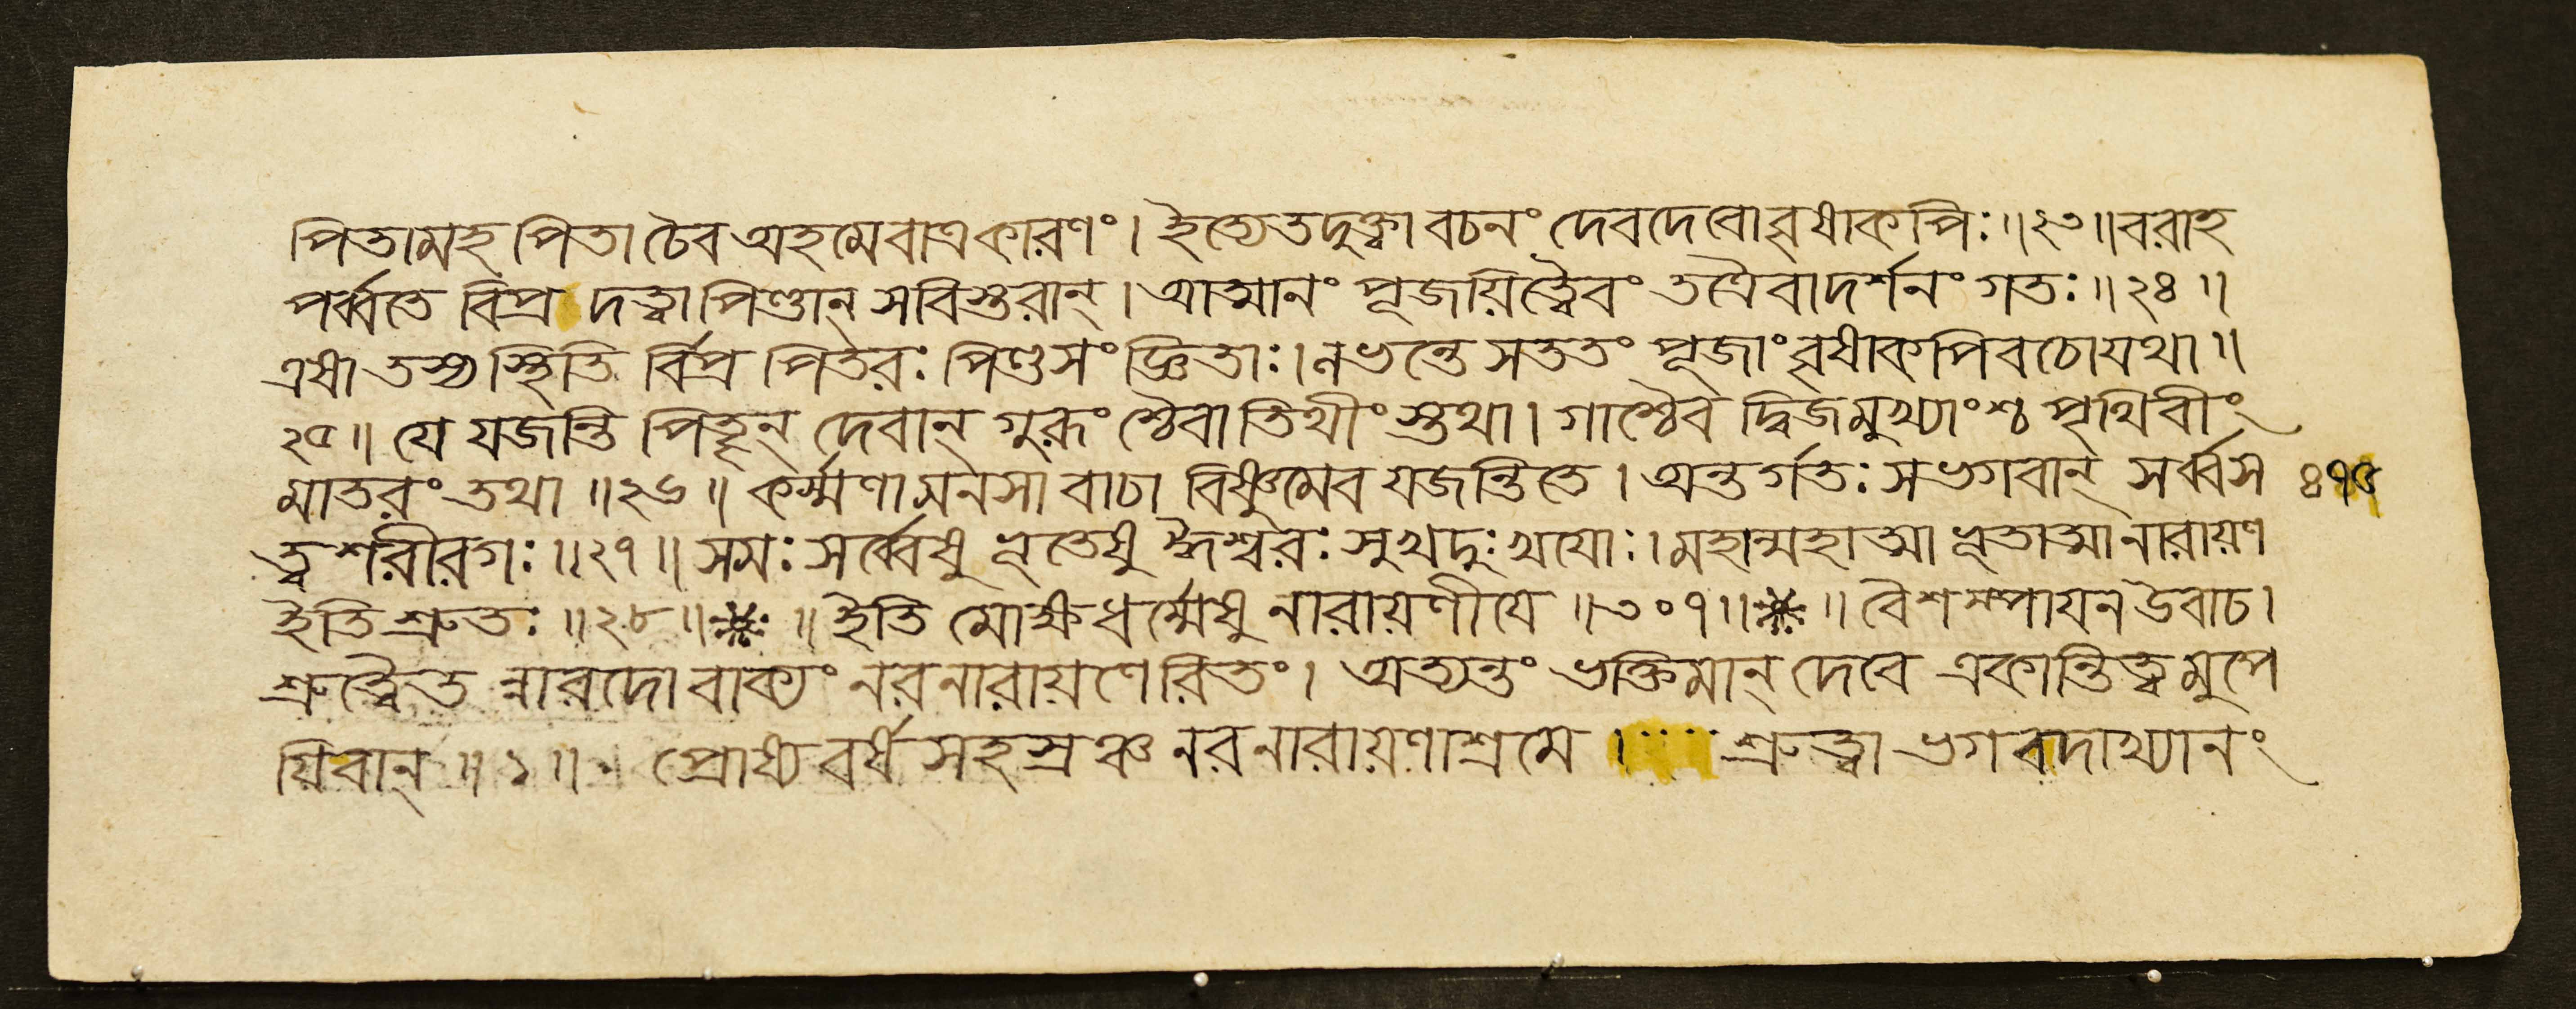 পিতামহ পিতা চৈব অহমেবাত্র কারণং। ইত্যেতদুক্ত্বা বচনং দেবদেবো বৃষাকপিঃ॥২৩॥ বরাহ
পর্ব্বতে বিপ্র দত্ত্বা পিণ্ডান্ সবিস্তরান্। আত্মানং পূজয়িত্বৈবং তত্রৈবাদর্শনং গতঃ॥২৪॥
এষা তস্য স্থিতি র্বিপ্র পিতরঃ পিণ্ডসংজ্ঞিতাঃ। লভন্তে সততং পূজাং বৃষাকপিবচো যথা॥
২৫॥ যে যজন্তি পিতৄন্ দেবান্ গুরূংশ্চৈবাতিথীংস্তথা। গাশ্চৈব দ্বিজমুখ্যাংশ্চ পৃথিবীং
মাতরং তথা॥২৬॥ কর্ম্মণা মনসা বাচা বিষ্ণুমেব যজন্তি তে। অন্তর্গতঃ স ভগবান্ সর্ব্বস ৪৭৫
ত্ত্বশরীরগঃ॥২৭॥ সমঃ সর্ব্বেষু ভূতেষু ঈশ্বরঃ সুখদুঃখযোঃ। মহান্মহাত্মা ভূতাত্মা নারায়ণ
ইতি শ্রুতঃ॥২৮॥ ※ ॥ ইতি মোক্ষধর্ম্মেষু নারায়ণীযে॥৩০৭॥ ※ ॥ বৈশম্পাযন উবাচ।
শ্রুত্বৈত ন্নারদো বাক্যং নরনারায়ণেরিতং। অত্যন্তং ভক্তিমান্ দেবে একান্তিত্বমুপে
য়িবান্॥১॥ প্রোষ্য বর্ষ সহস্রঞ্চ নরনারায়ণাশ্রমে। শ্রুত্বা ভগবদাখ্যানং